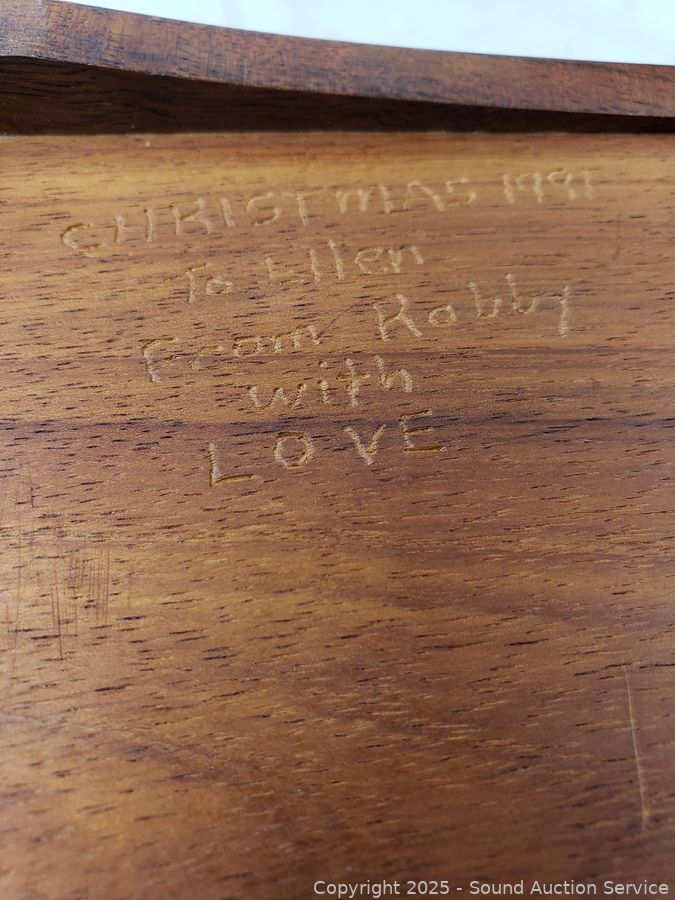 CHRISTMAS 1991
To Ellen
From Robby
with
LOVE
Copyright 2025 - Sound Auction Service